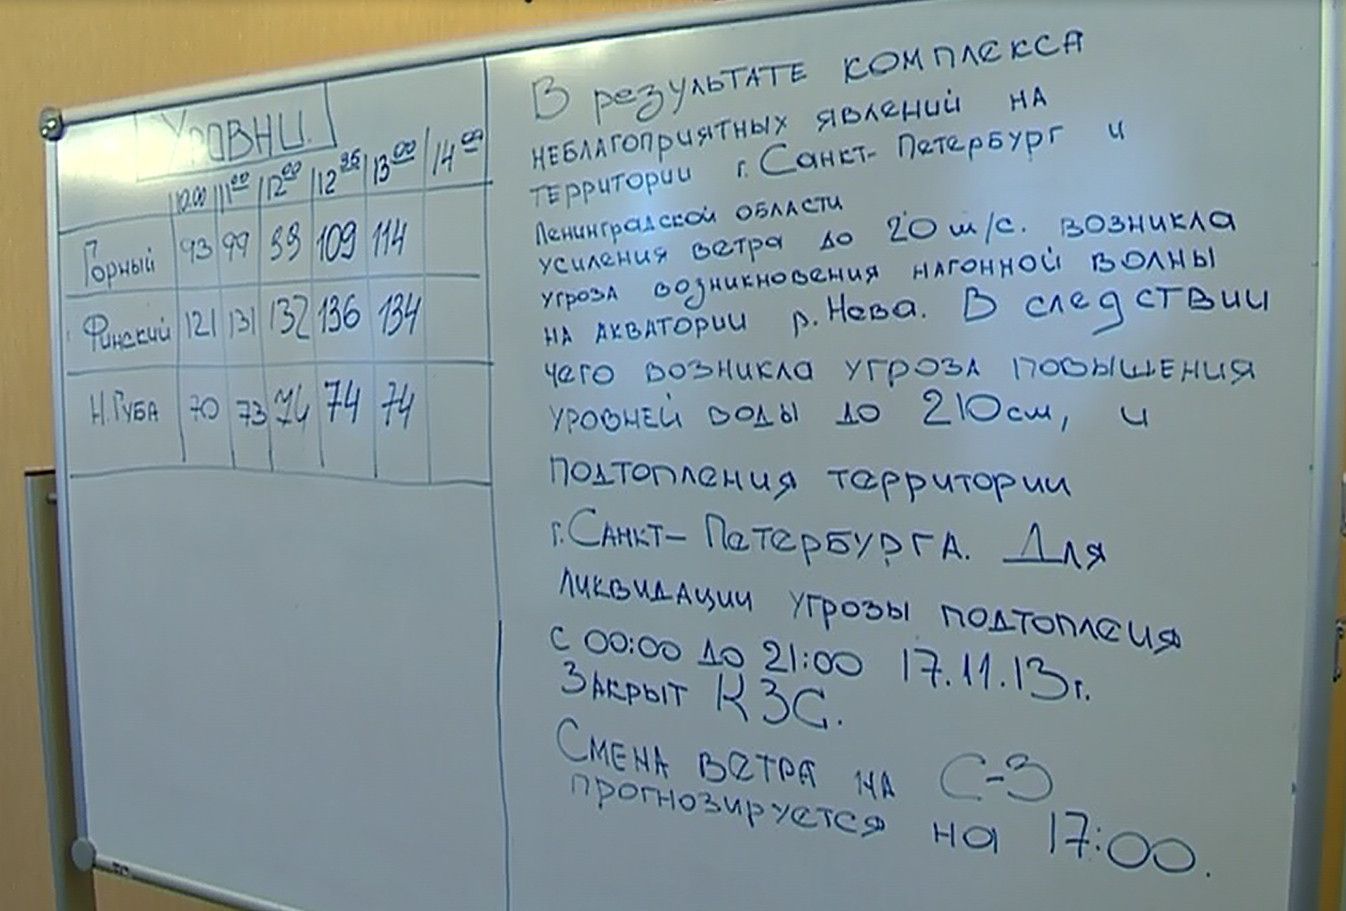 Уровни.
10.00 11 00 12 00 12 35 13 00 14 00
Горный 93 99 99 109 114
Финский 121 131 132 136 134
Н.Губа 70 73 74 74 74
В результате комплекса
неблагоприятных явлений на
территории г. Санкт-Петербург и
Ленинградской области
усиления ветра до 20 м/с. возникла
угроза возникновения нагонной волны
на акватории р. Нева. В следствии
чего возникла угроза повышения
уровней воды до 210 см, и
подтопления территории
г. Санкт-Петербурга. Для
ликвидации угрозы подтоплеия
с 00:00 до 21:00 17.11.13г.
Закрыт КЗС.
Смена ветра на С-З
прогнозируется на 17:00.